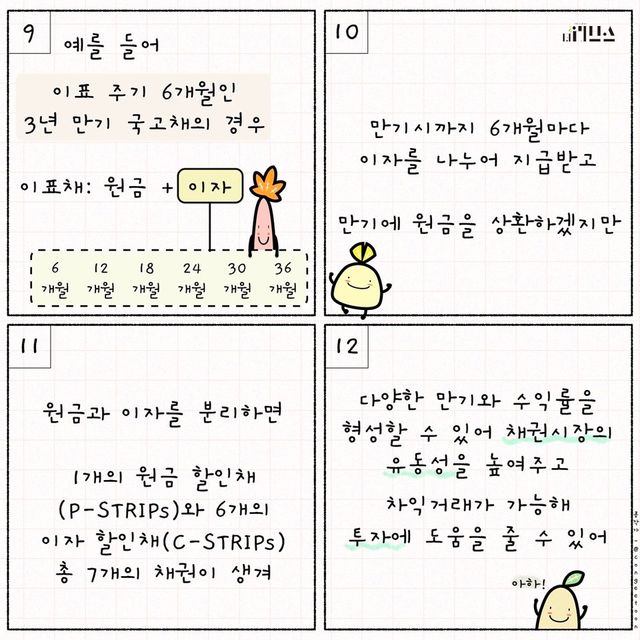 9
예를 들어
이표 주기 6개월인
3년 만기 국고채의 경우
이표채: 원금 + 이자
6 12 18 24 30 36
개월 개월 개월 개월 개월 개월
10
만기시까지 6개월마다
이자를 나누어 지급받고
만기에 원금을 상환하겠지만
11
원금과 이자를 분리하면
1개의 원금 할인채
(P-STRIPs)와 6개의
이자 할인채(C-STRIPs)
총 7개의 채권이 생겨
12
다양한 만기와 수익률을
형성할 수 있어 채권시장의
유동성을 높여주고
차익거래가 가능해
투자에 도움을 줄 수 있어
아하!